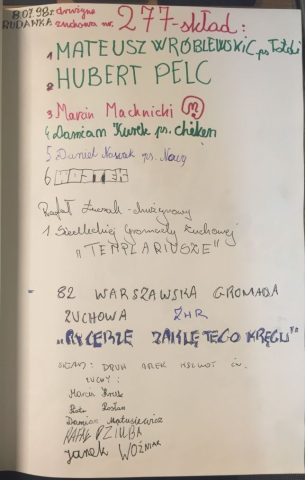 8.07.98r. drużyna
RUDAWKA zuchowa nr. 277-skład:
1 MATEUSZ WRÓBLEWSKI ps
2 HUBERT PELC
3 Marcin Machnicki
4 Damian Kurek ps. cheken
5 Daniel Nowak ps. Nacy
6
Rafał - drużynowy
1 Siedleckiej Gromady Zuchowej
"TEMPLARIUSZE"
82 WARSZAWSKA GROMADA
ZUCHOWA ZHR
"RYCERZE ZAKLĘTEGO KRĘGU"
SKŁAD: DRUH AREK
ZUCHY:
Marcin
Piotr
Damian Matusiewicz
RAFAŁ DZIUBA
Janek WOŹNIAK